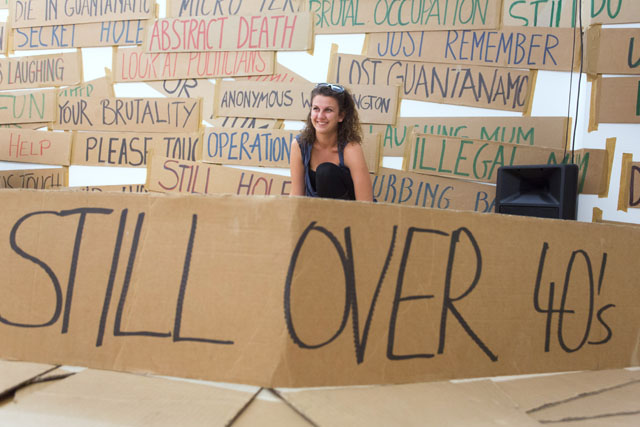 DIE IN GUANTANAMO
MICRO
BRUTAL OCCUPATION
STILL
DO
SECRET HOLE
ABSTRACT DEATH
JUST REMEMBER
LAUGHING
LOOK AT POLITICIANS
LOST GUANTANAMO
FUN
YOUR BRUTALITY
OR
ANONYMOUS
HELP
PLEASE TOUCH
OPERATION
MUM
ILLEGAL MUM
TOUCH
STILL HOLE
STILL OVER 40's